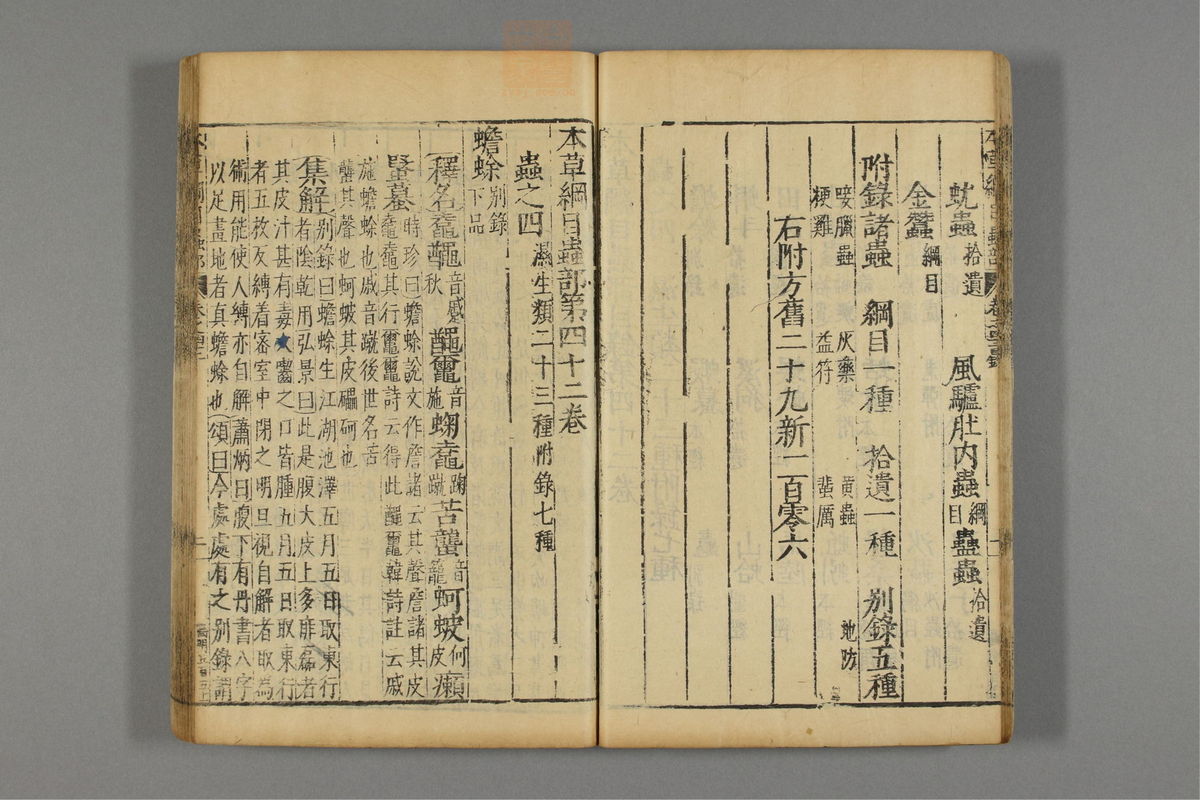 蚘蟲拾遺 風驢肚內蟲綱目蠱蟲拾遺
金蠶綱目
附錄諸蟲 綱目一種 拾遺一種 別錄五種
唼臘蟲 灰藥 黃蟲 地防
梗雞 益符 蜚厲
右附方舊二十九新一百零六
本草綱目蟲部第四十二卷
蟲之四濕生類二十三種附錄七種
蟾蜍別錄下品
釋名𪓰𪓿音感秋 𪓿𪓬音施 蝍𪓰音蹴 苦蠪音籠 蚵蚾何皮 癩
蝦蟇時珍曰蟾蜍說文作詹諸云其聲詹諸其皮
𪓰𪓰其行𪓿𪓿詩云得此𪓿𪓬韓詩註云戚
施蟾蜍也戚音蹴後世名苦
蠪其聲也蚵蚾其皮礧砢也
集解別錄曰蟾蜍生江湖池澤五月五日取東行
者陰乾用弘景曰此是腹大皮上多痱磊者
其皮汁甚有毒犬嚙之口皆腫五月五日取東行
者五枚反縛着密室中閉之明旦視自解者取為
術用能使人縛亦自解蕭炳曰腹下有丹書八字
以足畫地者真蟾蜍也頌曰今處處有之別錄謂